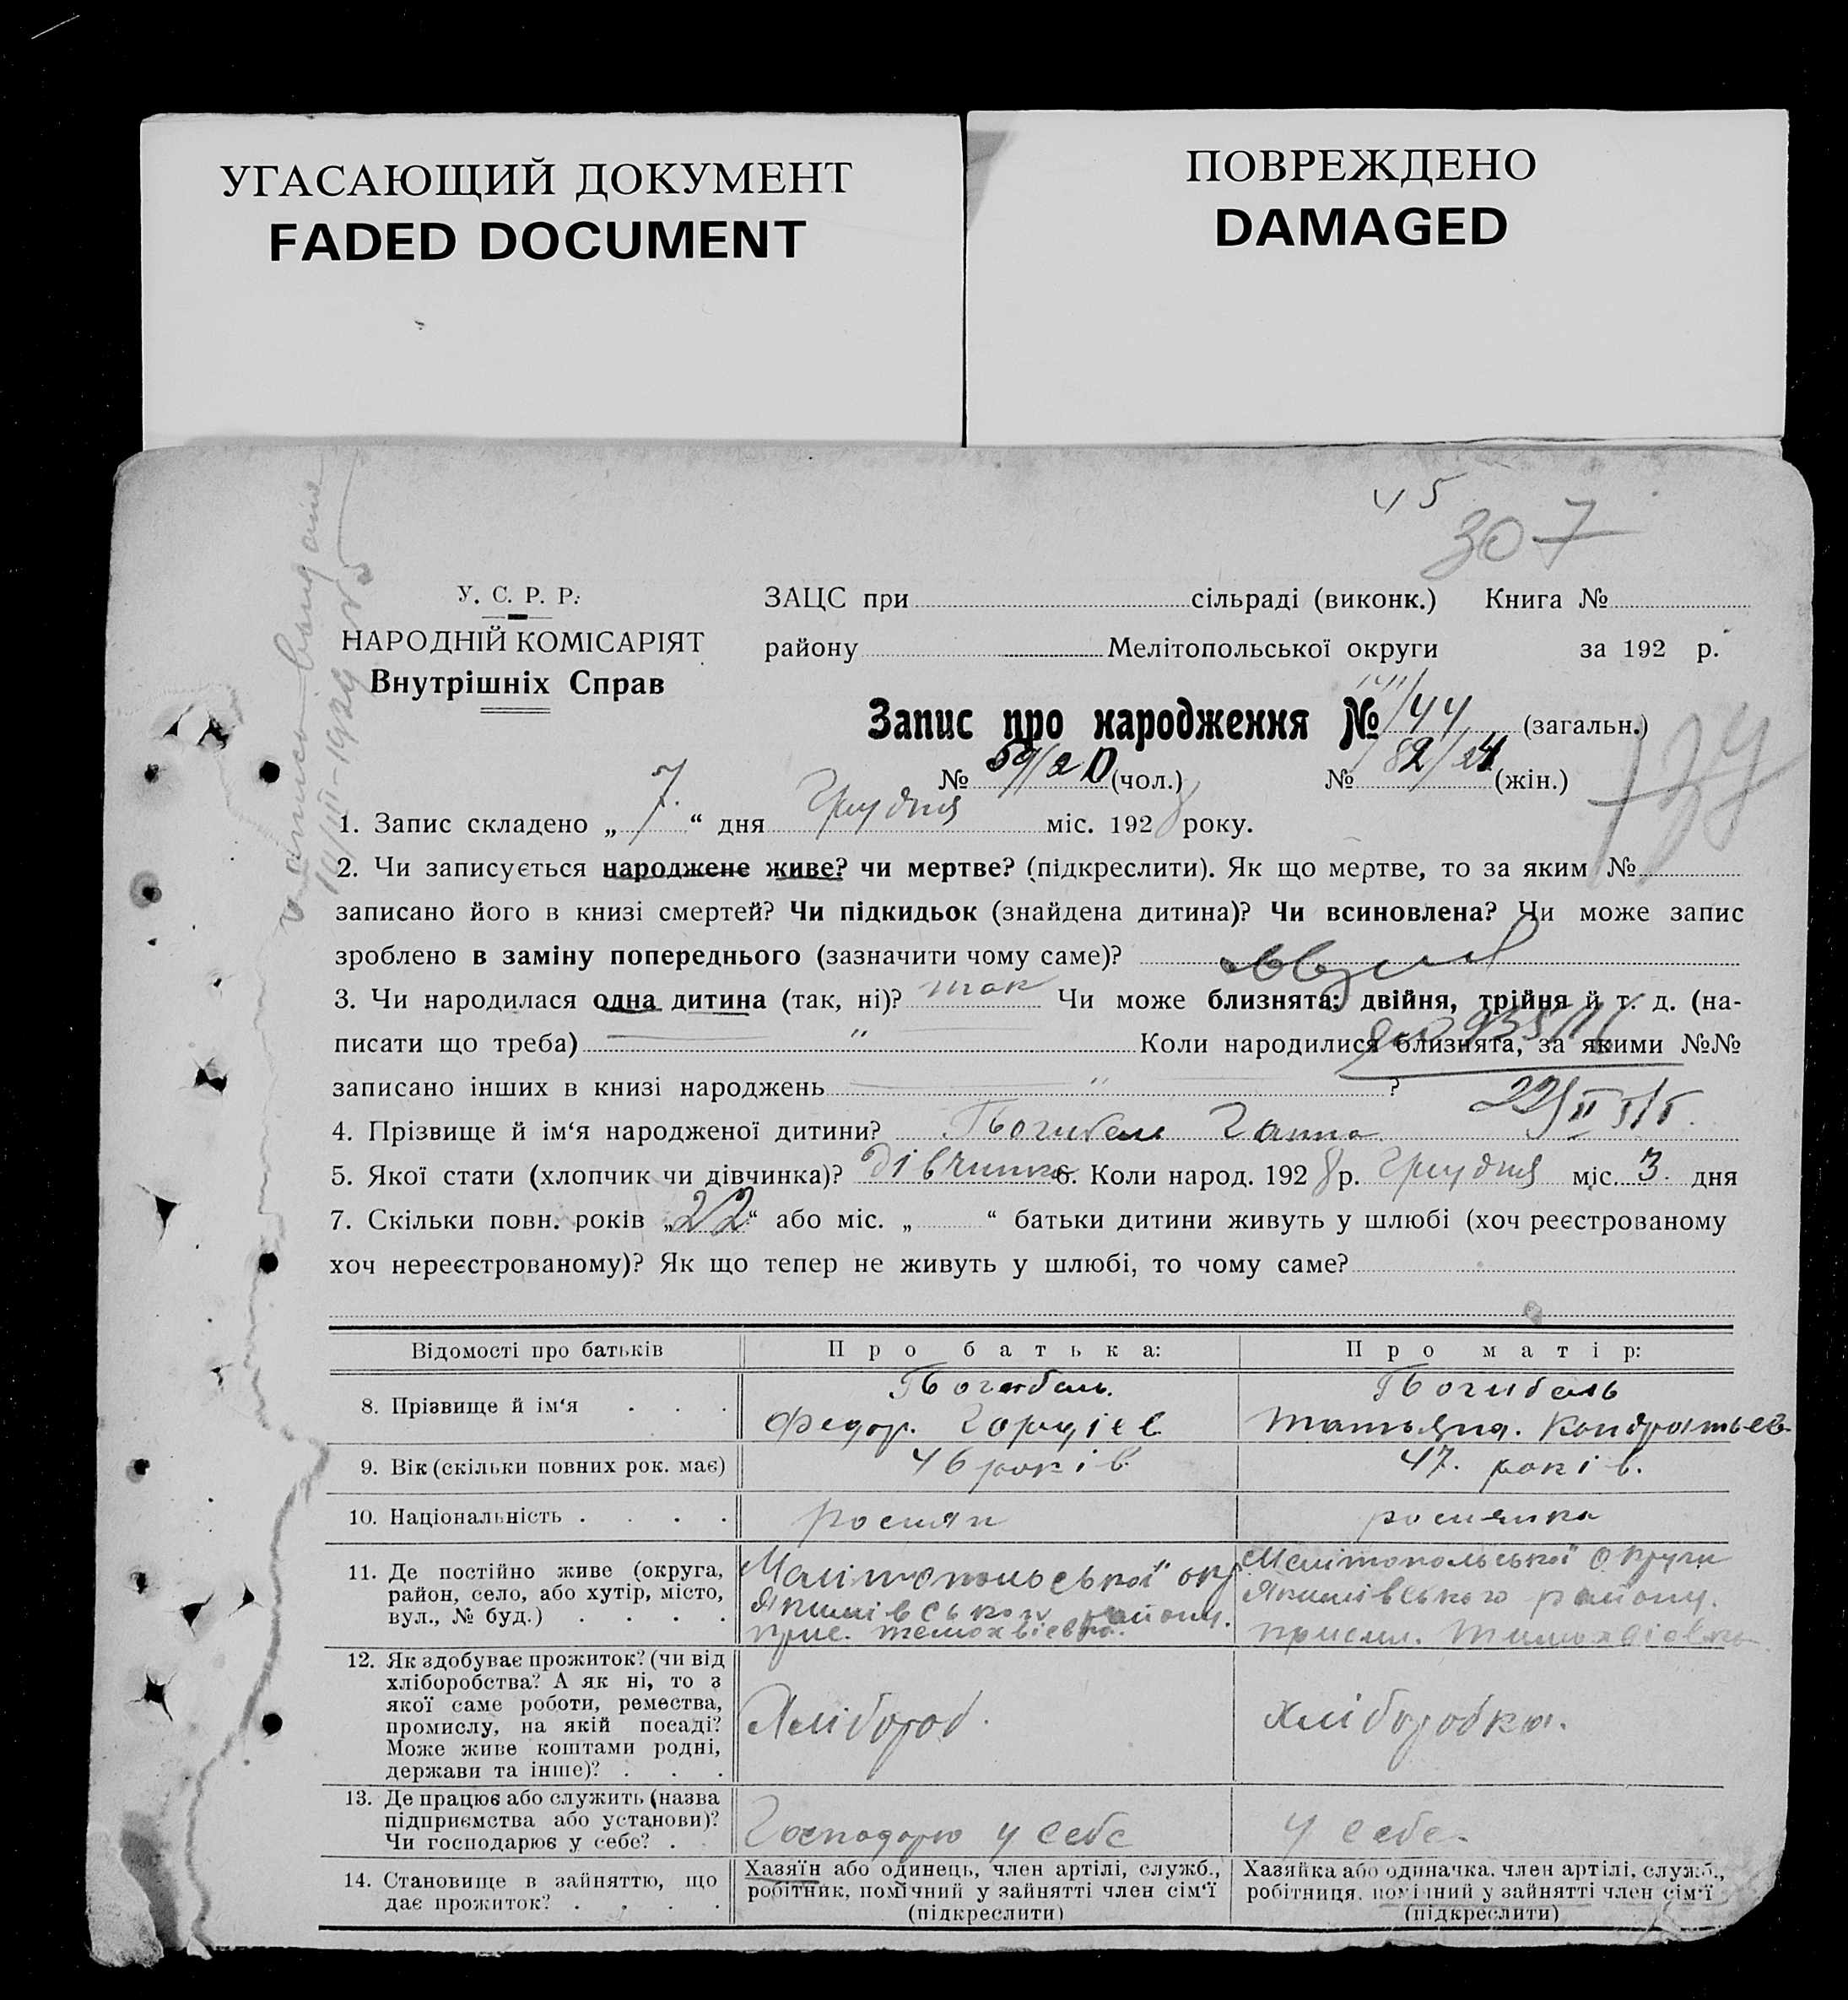 УГАСАЮЩИЙ ДОКУМЕНТ
FADED DOCUMENT
ПОВРЕЖДЕНО
DAMAGED
45
307
У. С. Р. Р.
НАРОДНІЙ КОМІСАРІЯТ
Внутрішніх Справ
ЗАЦС при сільраді (виконк.) Книга №
району Мелітопольської округи за 192 р.
Запис про народження № 144 (загальн.)
№ 59/20 (чол.) № 82/24 (жін.)
1. Запис складено „ 7. “ дня Грудня міс. 1928 року.
2. Чи записується народжене живе? чи мертве? (підкреслити). Як що мертве, то за яким №
записано його в книзі смертей? Чи підкидьок (знайдена дитина)? Чи всиновлена? Чи може запис
зроблено в заміну попереднього (зазначити чому саме)?
3. Чи народилася одна дитина (так, ні)? так Чи може близнята: двійня, трійня й т. д. (на-
писати що треба) " Коли народилися близнята, за якими №№
записано інших в книзі народжень " ?
4. Прізвище й ім‘я народженої дитини? Погибель Ганна
5. Якої стати (хлопчик чи дівчинка)? дівчинка 6. Коли народ. 1928 р. Грудня міс. 3. дня
7. Скільки повн. років „ 22 “ або міс. „ “ батьки дитини живуть у шлюбі (хоч реєстрованому
хоч нереєстрованому)? Як що тепер не живуть у шлюбі, то чому саме?
Відомості про батьків
Про батька:
Про матір:
8. Прізвище й ім‘я
Погибель.
Федор. Гордієв
Погибель
Татьяна. Кондратьев
9. Вік (скільки повних рок. має)
46 років.
47. років.
10. Національність
росиян
росиянка
11. Де постійно живе (округа,
район, село, або хутір, місто,
вул., № буд.)
Мелітопольської окр
Якимівського району.
Мелітопольської округи
Якимівського району.
12. Як здобуває прожиток? (чи від
хліборобства? А як ні, то з
якої саме роботи, ремества,
промислу, на якій посаді?
Може живе коштами родні,
держави та інше)?
Хлібороб.
хліборобка.
13. Де працює або служить (назва
підприємства або установи)?
Чи господарює у себе?
Господарю у себе
у себе.
14. Становище в зайняттю, що
дає прожиток?
Хазяїн або одинець, член артілі, служб.,
робітник, помічний у зайнятті член сім‘ї
(підкреслити)
Хазяйка або одиначка, член артілі, служб.,
робітниця, помічний у зайнятті член сім‘ї
(підкреслити)